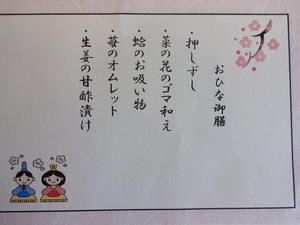 おひな御膳
・押しずし
・菜の花のゴマ和え
・蛤のお吸い物
・苺のオムレット
・生姜の甘酢漬け